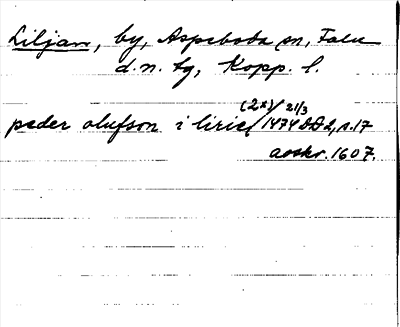 Liljan, by, Aspeboda sn, Falu
d.n. tg, Kopp. l.
(2x)/ 21/3
peder olufson i lirie/ 1474 DD2, s.17
avskr. 1607.